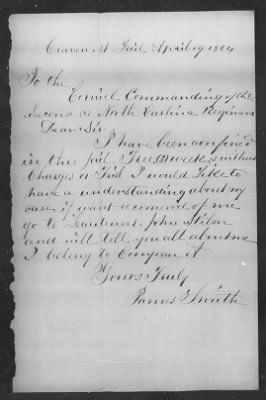 Craven St Jail April 19 1864
To the
Corniel Commanding of the
Second (2) North Carlina Regiment
Dear Sir
I have been confined
in this Jail Tree (3) weeks without
Charges or Trial I would Like to
have a understanding about my
case if want recomend of me
go to Lieutenant John
and will tell you all about me
I belong to Company
Yours Truly
James Smith